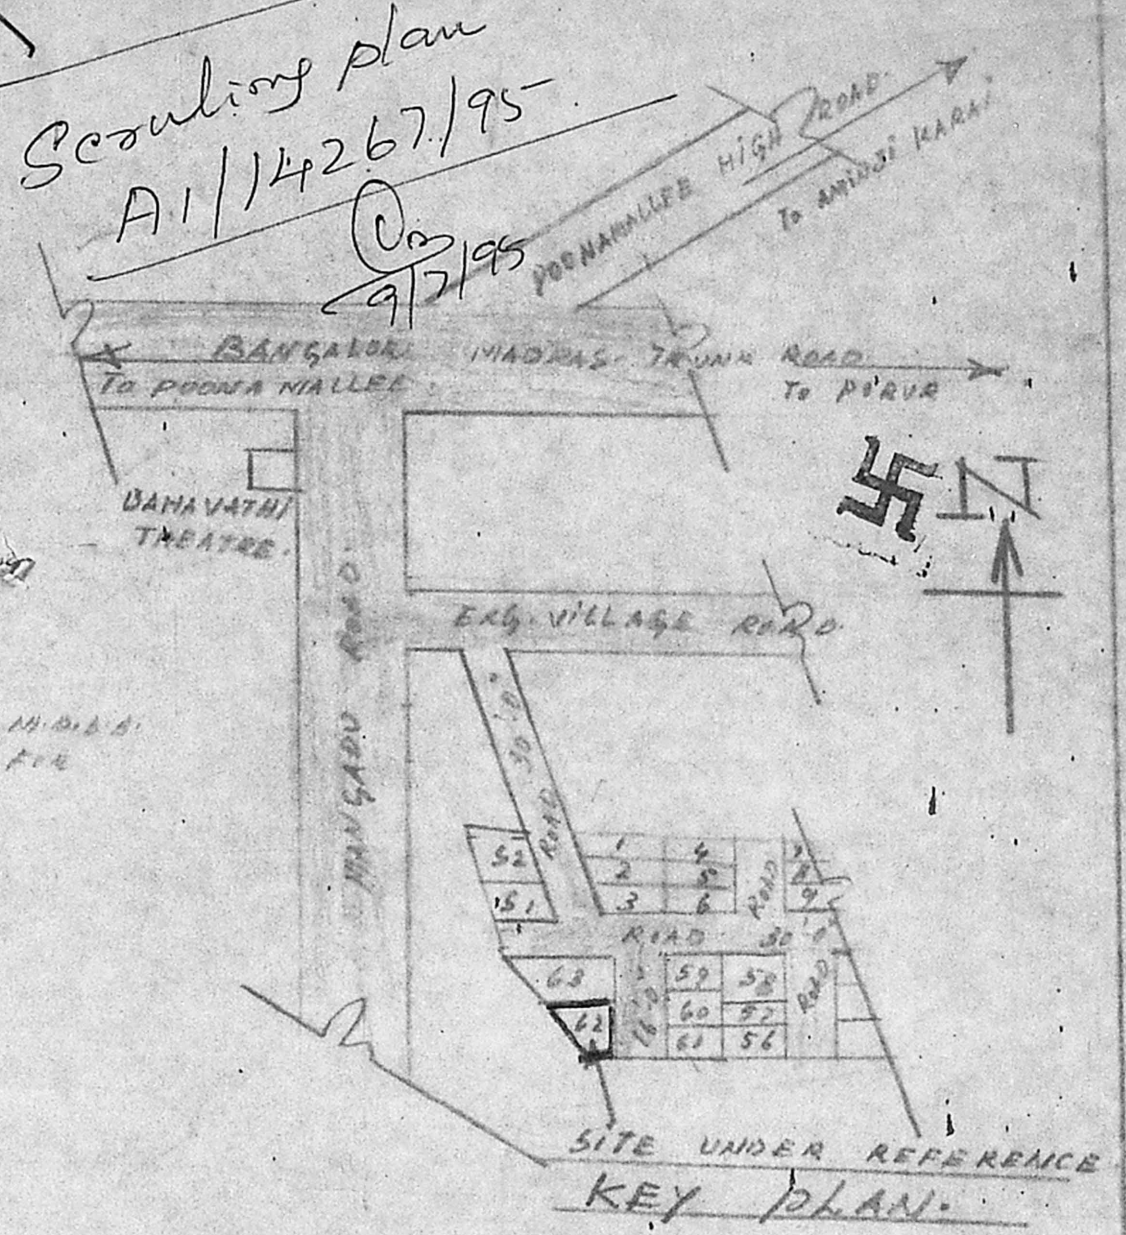 Scruting plan
A1/14267/95
9/7/95
POONAMALLEE HIGH ROAD
To AMINJI KARAI.
BANGALORE MADRAS TRUNK ROAD
To POONA MALLEE.
To PORUR
N
BAHAVATHI
THEATRE.
EXG. VILLAGE ROAD
MANGADU ROAD
ROAD 30'0"
52
51
1
2
3
4
5
6
ROAD
7
8
9
ROAD 30'0"
63
62
16'0"
59
60
61
58
57
56
ROAD
SITE UNDER REFERENCE
KEY PLAN.